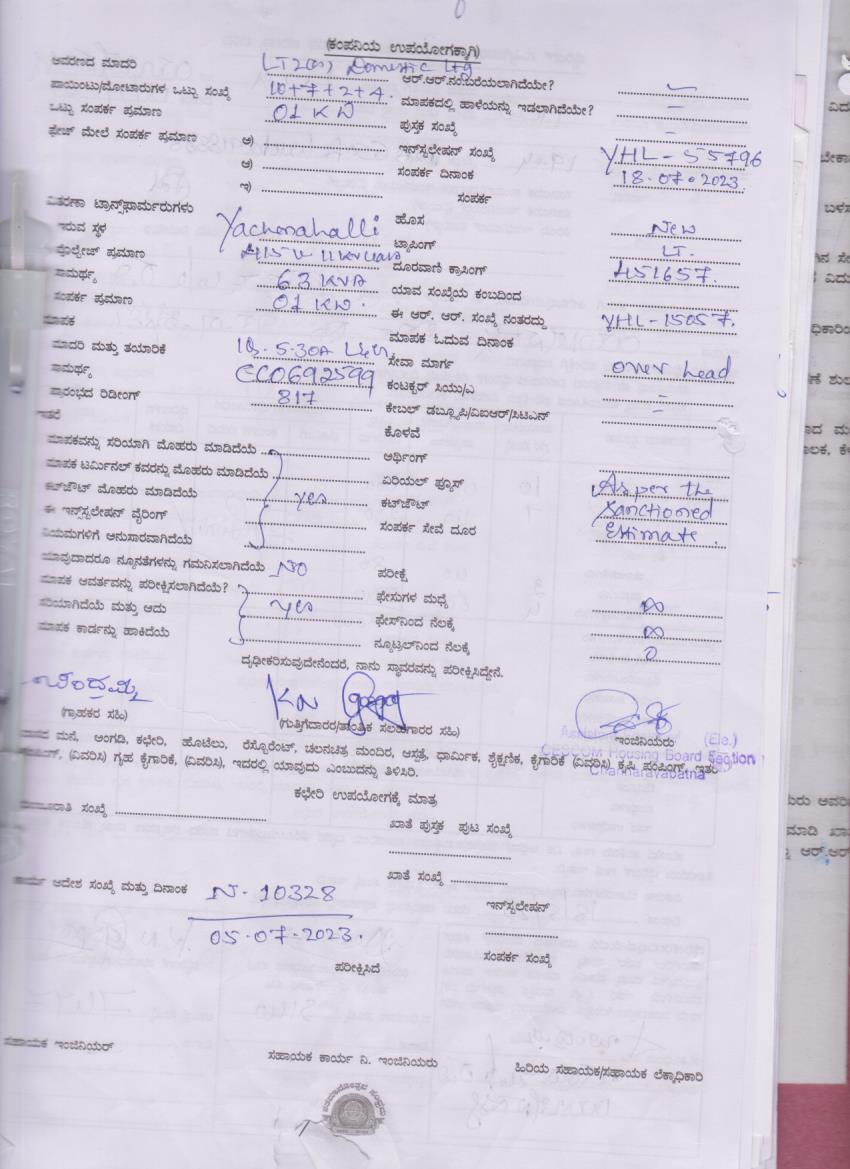 (ಕಂಪನಿಯ ಉಪಯೋಗಕ್ಕಾಗಿ)
ಆವರಣದ ಮಾದರಿ LT2 Domestic Ltg ಆರ್.ಆರ್.ನಂ.ಬರೆಯಲಾಗಿದೆಯೇ?
ಪಾಯಿಂಟು/ಮೋಟಾರುಗಳ ಒಟ್ಟು ಸಂಖ್ಯೆ 10+7+2+4. ಮಾಪಕದಲ್ಲಿ ಹಾಳೆಯನ್ನು ಇಡಲಾಗಿದೆಯೇ? –
ಒಟ್ಟು ಸಂಪರ್ಕ ಪ್ರಮಾಣ 01 KW ಪುಸ್ತಕ ಸಂಖ್ಯೆ –
ಫೇಜ್ ಮೇಲೆ ಸಂಪರ್ಕ ಪ್ರಮಾಣ ಅ) ಇನ್‌ಸ್ಟಲೇಷನ್ ಸಂಖ್ಯೆ YHL-55796
ಆ) ಸಂಪರ್ಕ ದಿನಾಂಕ 18.07.2023.
ಇ) ಸಂಪರ್ಕ
ವಿತರಣಾ ಟ್ರಾನ್ಸ್‌ಫಾರ್ಮರುಗಳು ಹೊಸ New
ಇರುವ ಸ್ಥಳ Yachenahalli ಟ್ಯಾಪಿಂಗ್ LT.
ವೊಲ್ಟೇಜ್ ಪ್ರಮಾಣ ದೂರವಾಣಿ ಕ್ರಾಸಿಂಗ್ 451657.
ಸಾಮರ್ಥ್ಯ 63 KVA ಯಾವ ಸಂಖ್ಯೆಯ ಕಂಬದಿಂದ
ಸಂಪರ್ಕ ಪ್ರಮಾಣ 01 KW. ಈ ಆರ್. ಆರ್. ಸಂಖ್ಯೆ ನಂತರದ್ದು YHL-15057.
ಮಾಪಕ ಮಾಪಕ ಓದುವ ದಿನಾಂಕ
ಮಾದರಿ ಮತ್ತು ತಯಾರಿಕೆ 5-30A ಸೇವಾ ಮಾರ್ಗ over head
ಸಾಮರ್ಥ್ಯ CC0692599 ಕಂಟಕ್ಟರ್ ಸಿಯು/ಎ –
ಪ್ರಾರಂಭದ ರಿಡೀಂಗ್ 817 ಕೇಬಲ್ ಡಬ್ಲ್ಯೂಪಿ/ಎಐಆರ್/ಸಿಟಿಎನ್ –
ಇತರೆ ಕೊಳವೆ
ಮಾಪಕವನ್ನು ಸರಿಯಾಗಿ ಮೊಹರು ಮಾಡಿದೆಯೆ ಅರ್ಥಿಂಗ್
ಮಾಪಕ ಟರ್ಮಿನಲ್ ಕವರನ್ನು ಮೊಹರು ಮಾಡಿದೆಯೆ ಏರಿಯಲ್ ಫ್ಯೂಸ್ As per the
ಕಟ್‌ಔಟ್ ಮೊಹರು ಮಾಡಿದೆಯೆ yes ಕಟ್‌ಔಟ್ Sanctioned
ಈ ಇನ್‌ಸ್ಟಲೇಷನ್ ವೈರಿಂಗ್ ಸಂಪರ್ಕ ಸೇವೆ ದೂರ Estimate.
ನಿಯಮಗಳಿಗೆ ಅನುಸಾರವಾಗಿದೆಯೆ
ಯಾವುದಾದರೂ ನ್ಯೂನತೆಗಳನ್ನು ಗಮನಿಸಲಾಗಿದೆಯೆ NO ಪರೀಕ್ಷೆ
ಮಾಪಕ ಆವರ್ತವನ್ನು ಪರೀಕ್ಷಿಸಲಾಗಿದೆಯೆ? ಫೇಸುಗಳ ಮಧ್ಯೆ ∞
ಸರಿಯಾಗಿದೆಯೆ ಮತ್ತು ಅದು yes ಫೇಸ್‌ನಿಂದ ನೆಲಕ್ಕೆ ∞
ಮಾಪಕ ಕಾರ್ಡನ್ನು ಹಾಕಿದೆಯೆ ನ್ಯೂಟ್ರಲ್‌ನಿಂದ ನೆಲಕ್ಕೆ 0
ದೃಢೀಕರಿಸುವುದೇನೆಂದರೆ, ನಾನು ಸ್ಥಾವರವನ್ನು ಪರೀಕ್ಷಿಸಿದ್ದೇನೆ.
(ಗ್ರಾಹಕರ ಸಹಿ) (ಗುತ್ತಿಗೆದಾರರ/ತಾಂತ್ರಿಕ ಸಲಹಾಗಾರರ ಸಹಿ) ಇಂಜಿನಿಯರು
(Ele.)
CESCOM Housing Board Section
Channarayapatna
ಮನೆ, ಅಂಗಡಿ, ಕಛೇರಿ, ಹೊಟೆಲು, ರೆಸ್ಟೊರೆಂಟ್, ಚಲನಚಿತ್ರ ಮಂದಿರ, ಆಸ್ಪತ್ರೆ, ಧಾರ್ಮಿಕ, ಶೈಕ್ಷಣಿಕ, ಕೈಗಾರಿಕೆ (ವಿವರಿಸಿ) ಕೃಷಿ ಪಂಪಿಂಗ್, ಇತರೆ
(ವಿವರಿಸಿ) ಗೃಹ ಕೈಗಾರಿಕೆ, (ವಿವರಿಸಿ), ಇದರಲ್ಲಿ ಯಾವುದು ಎಂಬುದನ್ನು ತಿಳಿಸಿರಿ.
ಕಛೇರಿ ಉಪಯೋಗಕ್ಕೆ ಮಾತ್ರ
ಸಂಖ್ಯೆ ಖಾತೆ ಪುಸ್ತಕ ಪುಟ ಸಂಖ್ಯೆ
ಖಾತೆ ಸಂಖ್ಯೆ
ಕಾರ್ಯ ಆದೇಶ ಸಂಖ್ಯೆ ಮತ್ತು ದಿನಾಂಕ N-10328 ಇನ್‌ಸ್ಟಲೇಷನ್
05.07.2023.
ಸಂಪರ್ಕ ಸಂಖ್ಯೆ
ಪರೀಕ್ಷಿಸಿದೆ
ಸಹಾಯಕ ಇಂಜಿನಿಯರ್ ಸಹಾಯಕ ಕಾರ್ಯ ನಿ. ಇಂಜಿನಿಯರು ಹಿರಿಯ ಸಹಾಯಕ/ಸಹಾಯಕ ಲೆಕ್ಕಾಧಿಕಾರಿ